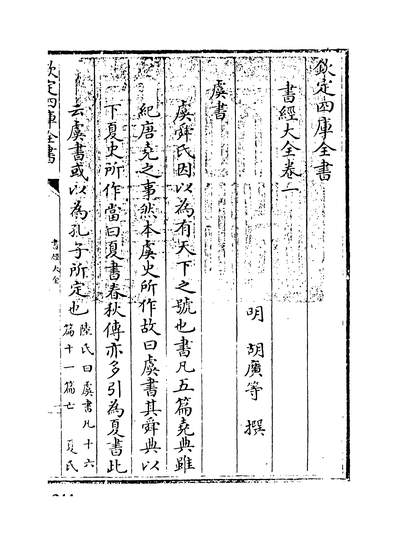 欽定四庫全書
書經大全卷一
明 胡廣等 撰
虞書
虞舜氏因以為有天下之號也書凡五篇堯典雖
紀唐堯之事然本虞史所作故曰虞書其舜典以
下夏史所作當曰夏書春秋傳亦多引為夏書此
云虞書或以為孔子所定也陸氏曰虞書凡十六
篇十一篇亡 夏氏
欽定四庫全書
書經大全